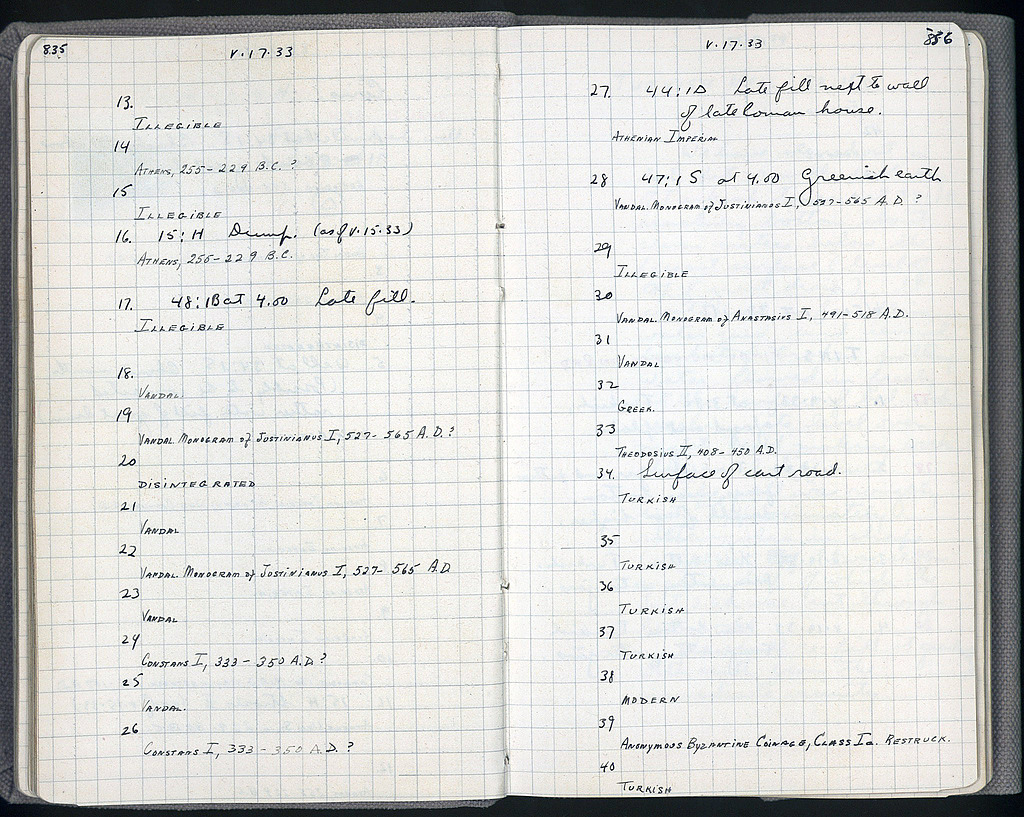 835
V·17·33
13.
ILLEGIBLE
14
ATHENS, 255-229 B.C. ?
15
ILLEGIBLE
16. 15:H Dump. (as of V·15·33)
ATHENS, 255-229 B.C.
17. 48:1B at 4.00 Late fill.
ILLEGIBLE
18.
VANDAL.
19
VANDAL. MONOGRAM of JUSTINIANUS I, 527-565 A.D.?
20
DISINTEGRATED
21
VANDAL
22
VANDAL. MONOGRAM of JUSTINIANUS I, 527-565 A.D
23
VANDAL
24
CONSTANS I, 333-350 A.D?
25
VANDAL.
26
CONSTANS I, 333-350 A.D. ?
V·17·33
836
27. 44:1D Late fill next to wall
of late Roman house.
ATHENIAN IMPERIAL
28 47:1S at 4.00 Greenish earth
VANDAL. MONOGRAM of JUSTINIANUS I, 527-565 A.D. ?
29
ILLEGIBLE
30
VANDAL. MONOGRAM of ANASTASIUS I, 491-518 A.D.
31
VANDAL
32
GREEK.
33
THEODOSIUS II, 408-450 A.D.
34. Surface of cart road.
TURKISH
35
TURKISH
36
TURKISH
37
TURKISH
38
MODERN
39
ANONYMOUS BYZANTINE COINAGE, CLASS Ia. RESTRUCK.
40
TURKISH